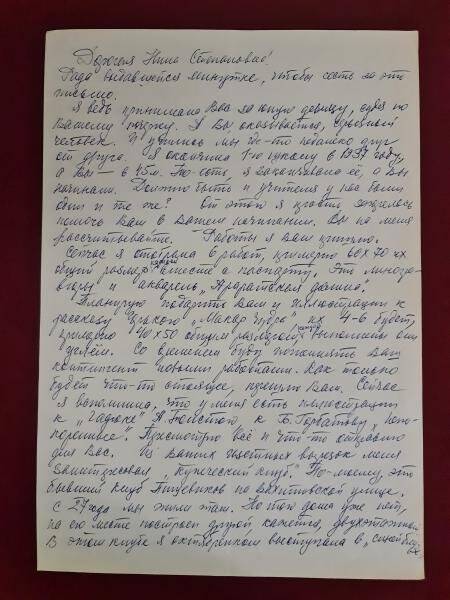 Дорогая Нина Степановна!
Рада выдавшейся минутке, чтобы сесть за это
письмо.
Я ведь принимала Вас за юную девицу, судя по
Вашему почерку. А Вы оказывается, серьёзный
человек. И учились мы где-то недалеко друг
от друга. Я окончила 1-ю школу в 1937 году,
а Вы — в 45м. То-есть, я заканчивала её, а Вы
начинали. Должно быть и учителя у нас были
одни и те же? От этой мне захотелось
помочь Вам в Вашем начинании. Вы на меня
рассчитывайте. Работы я Вам вышлю.
Сейчас я отобрала 6 работ, примерно 60х70 их
общий размер вместе с паспарту. Это линогра-
вюры и акварель "Араратская долина".
Планирую подарить Вам и иллюстрации к
рассказу Горького "Макар Чудра" их 4-6 будет,
примерно 40х50 общим размером, выполнены они
углём. Со временем буду пополнять Ваш
контингент новыми работами. Как только
будет что-то стоящее, пришлю Вам. Сейчас
я вспомнила, что у меня есть иллюстрации
к "Гадюке" А. Толстого к Б. Горбатову, "Непо-
коренные". Пересмотрю всё и что-то отправлю
для Вас. Из Ваших газетных вырезок меня
заинтересовал "Купеческий клуб". По-моему, это
бывший клуб Пищевиков на Вахитовской улице.
С 27 года мы жили там. Но того дома уже нет,
на его месте построен другой кажется, двухэтажный
В этом клубе я октябрёнком выступала в "Синей блу-
зе"